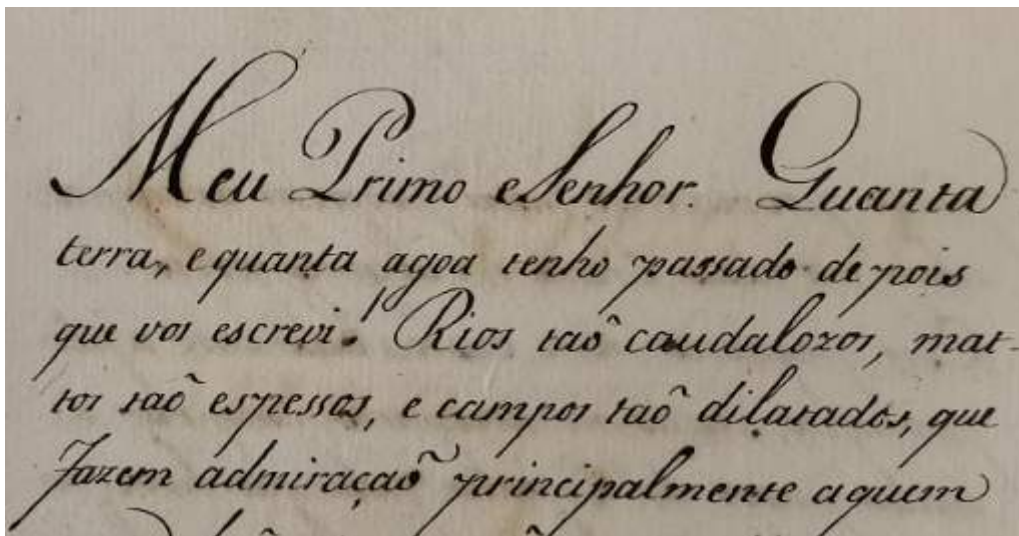 Meu Primo e Senhor. Quanta
terra, e quanta agoa tenho passado de pois
que vos escrevi! Rios taõ caudalozos, mat-
tos taõ espessos, e campos taõ dilatados, que
fazem admiraçaõ principalmente aquem